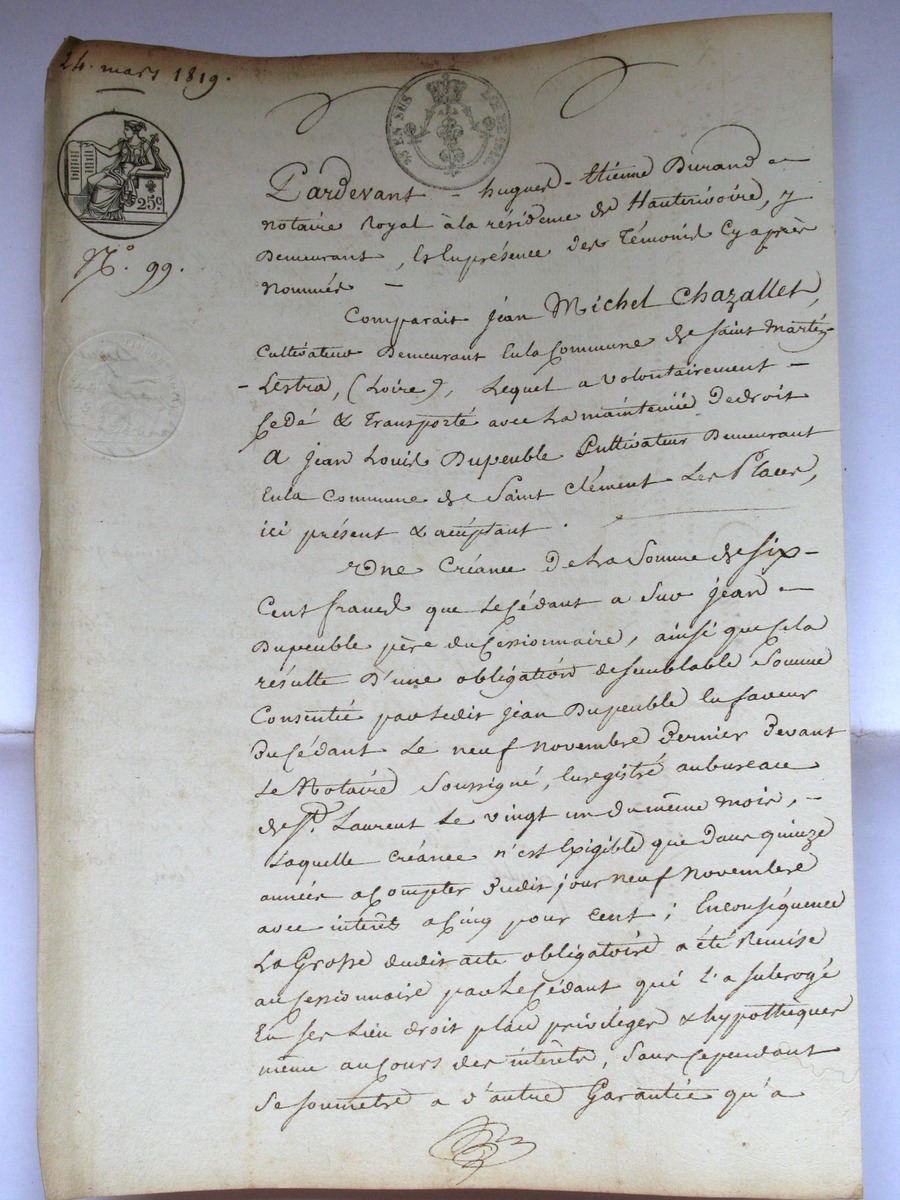 24. mars 1819.
25 EN SUS
25c.
N.° 99.
Pardevant - hugues - Etienne Durand -
notaire Royal à la résidence de Hauterivoire, y
Demeurant, Et Enprésence des Témoins Cy après
nommés -
Comparait jean Michel Chazallet,
Cultivateur Demeurant Enla Commune de Saint Martin
- Lestra, (Loire), Lequel a volontairement -
Cedé & Transporté avec La maintenüe dedroit
A jean Louis Dupeuble Cultivateur Demeurant
Enla Commune de Saint Clément Les Places,
ici présent & acceptant.
Une Créance De La Somme de Six -
Cent francs que LeCédant a Sur jean -
Dupeuble père ducessionnaire, ainsi que Cela
résulte D'une obligation desemblable Somme
Consentie par Ledit jean Dupeuble En faveur
DuCédant Le neuf novembre Dernier Devant
Le Notaire Soussigné, Enregistré aubureau
de St. Laurent Le vingt un du même mois, -
Laquelle Créance n'est Exigible que Dans quinze
années aCompter Dudit jour neuf novembre
avec intérêts aCinq pour Cent; Enconséquence
La Grosse dudit acte obligatoire a été Remise
auCessionnaire par LeCédant qui L'a subrogé
En ses Lieu droit place privilèges & hypothèques
même auCours des intérêts, Sans Cependant
Se soumetre a d'autre Garantie qu'a